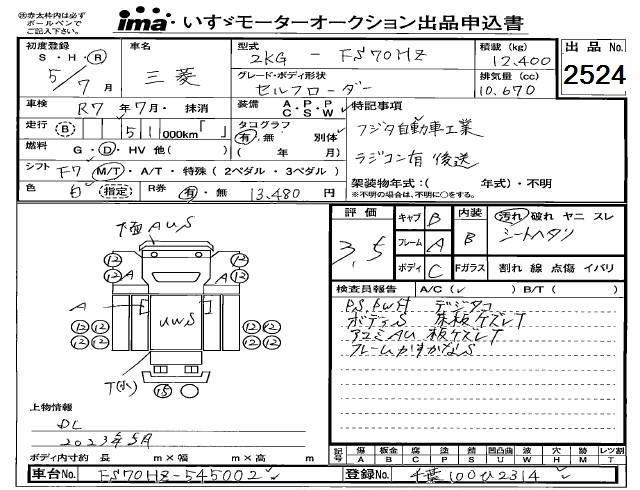 ※赤太枠内は必ず
ボールペンで
ご記入下さい。
ima いすゞモーターオークション出品申込書
初度登録 S・H・R 5/7月
車名 三菱
型式 2KG - FS70HZ
積載 (kg) 12,400
出品No. 2524
グレード・ボディ形状 セルフローダー
排気量 (cc) 10,670
車検 R7年7月・抹消
装備 A.P.P C.S.W
特記事項
走行 B 51,000km「 」
タコグラフ 有・無 別体 ( 年 月)
フジタ自動車工業
燃料 G・D・HV 他( )
ラジコン有 後送
シフト F7 M/T・A/T・特殊 (2ペダル・3ペダル)
架装物年式:( 年式)・不明
※不明の場合は、不明に○をする。
色 白 指定 R券 有・無 13,480円
評価 3.5
キャブ B
フレーム A
ボディ C
内装 B
汚れ 破れ ヤニ スレ
シートヘタリ
Fガラス 割れ 線 点傷 イバリ
検査員報告 A/C( ✓ ) B/T( )
P.S,P.W付 デジタコ
ボデーS 床板ケズレT
アユミAU 板ケズレT
フレームかすかなS
下廻AWS
12 12
12 A 12
A UWS
12 12 12 12
12 12 12 12
T(小) 15
上物情報
DL
2023年5月
ボディ内寸約 長 m×幅 m×高 m
記号 傷 A 板金 B 腐 C 塗 P 錆 S 凹凸曲 U 波 W 穴 H 跡 M レツ割 T
車台No. FS70HZ-545002✓
登録No. 千葉100ひ2314✓